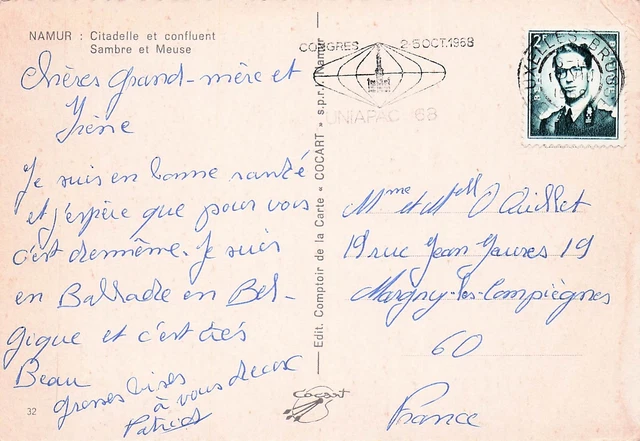 NAMUR : Citadelle et confluent
Sambre et Meuse
Chères Grand-mère et
Irène
Je suis en bonne santé
et j'espère que pour vous
c'est de même. Je suis
en Ballade en Bel-
gique et c'est très
Beau
grosses bises
à vous deux
Patrick
32
Edit. Comptoir de la Carte « COCART » s.p.r.l. Namur
Cocart
CONGRES 2-5 OCT. 1968
UNIAPAC 68
2F
BRUXELLES-BRUSSEL
Mme et Mell Ouillet
19 rue Jean Jaures 19
Margny-les-Compiègnes
60
France